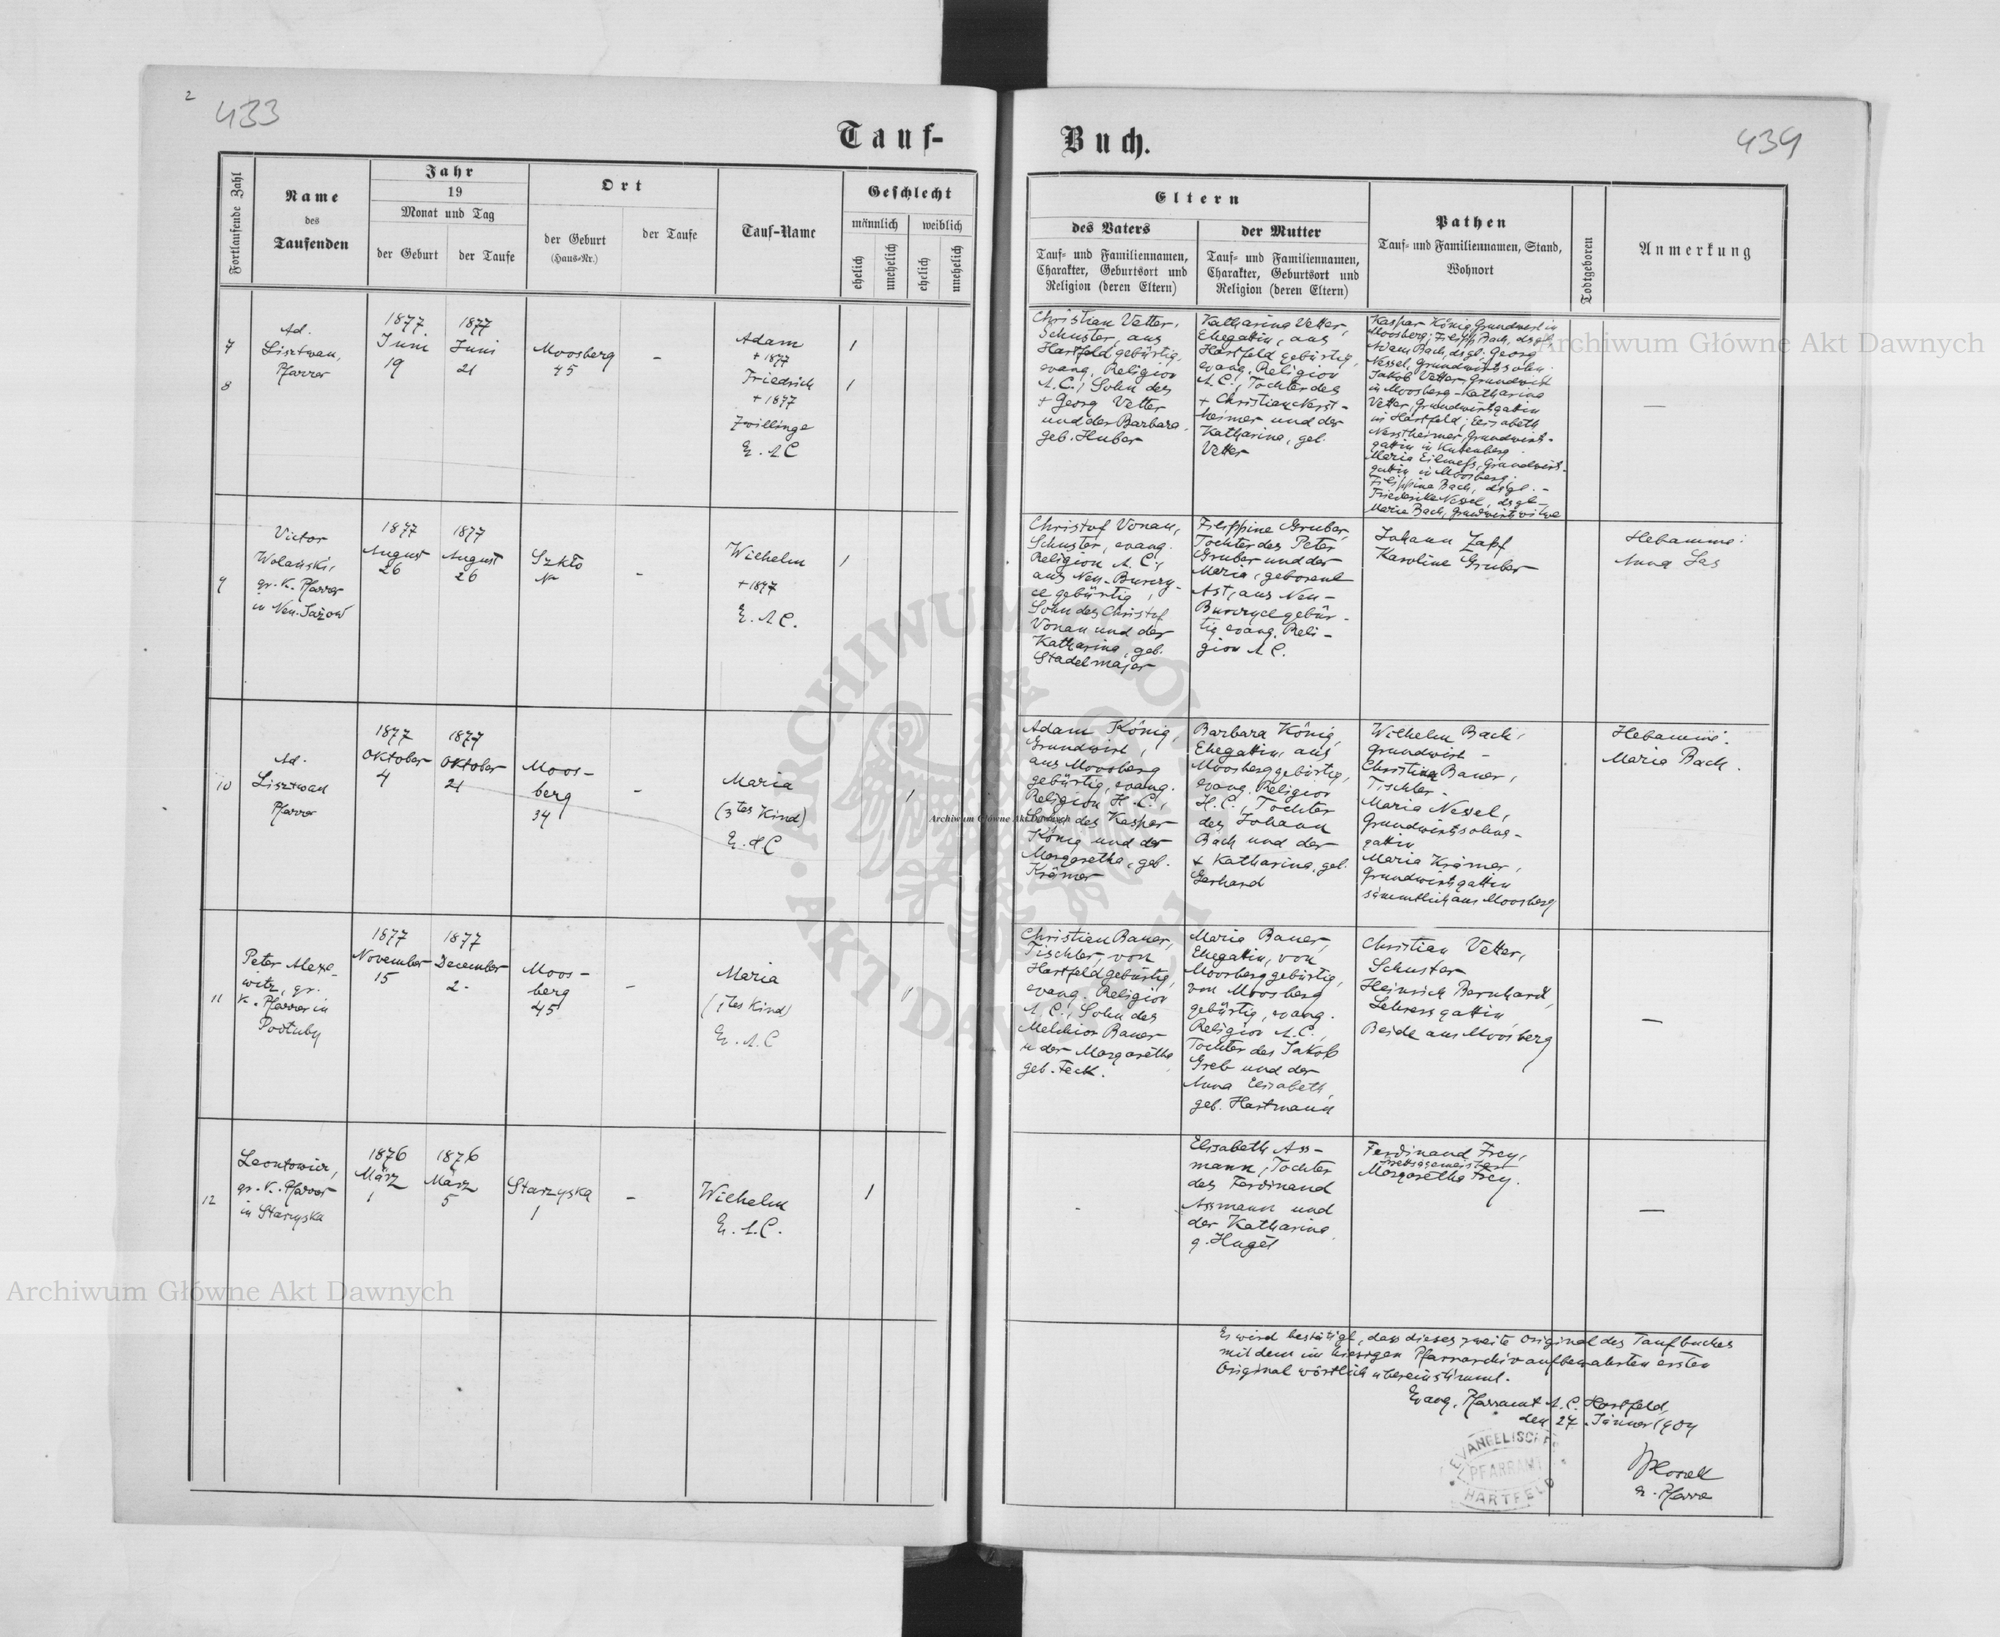 2
433
434
Tauf-
Buch.
Fortlaufende Zahl
Name
des
Taufenden
Jahr
19
Monat und Tag
der Geburt
der Taufe
Ort
der Geburt
(Haus-Nr.)
der Taufe
Tauf-Name
Geschlecht
männlich
weiblich
ehelich
unehelich
ehelich
unehelich
Eltern
des Vaters
Tauf- und Familiennamen,
Charakter, Geburtsort und
Religion (deren Eltern)
der Mutter
Tauf- und Familiennamen,
Charakter, Geburtsort und
Religion (deren Eltern)
Pathen
Tauf- und Familiennamen, Stand,
Wohnort
Todtgeboren
Anmerkung
7
8
Ad.
Lisztwan,
Pfarrer
1877
Juni
19
1877
Juni
21
Moosberg
45
-
Adam
+ 1877
Friedrich
+ 1877
Zwillinge
E. A C
1
1
Christian Vetter,
Schuster, aus
Hartfeld gebürtig,
evang. Religion
A. C., Sohn des
+ Georg Vetter
und der Barbara
geb. Huber
Katharina Vetter,
Ehegattin, aus
Hartfeld gebürtig,
evang. Religion
A. C., Tochter des
+ Christian
heimer und der
Katharina, geb.
Vetter
Kaspar König, Grundwirt in
Moosberg; Filipp Bach, dsgl.
Adam Bach, dsgl; Georg
Nessel, Grundwirtssohn
Jakob Vetter, Grundwirt
in Moosberg - Katharina
Vetter, Grundwirtsgattin
in Hartfeld; Elisabeth
Grundwirts-
gattin in
Maria Grundwirts-
gattin in Moosberg;
Filippine Bach, dsgl. -
Friederike Nessel, dsgl -
Maria Bach, Grundwirtswitwe
—
9
Victor
Wolański,
gr. K. Pfarrer
in Neu-Jażow
1877
August
26
1877
August
26
Szkło
N
-
Wilhelm
+ 1877
E. A C.
1
Christof Vonau,
Schuster, evang.
Religion A. C.,
aus Neu-Bunczy-
ce gebürtig,
Sohn des Christof
Vonau und der
Katharina, geb.
Stadelmajer
Filippine Gruber,
Tochter des Peter
Gruber und der
Maria, geborene
Ast, aus Neu-
Bunczyce gebür-
tig, evang. Reli-
gion A C.
Johann Zapf
Karoline Gruber
Hebamme:
Anna Las
10
Ad.
Lisztwan
Pfarrer
1877
Oktober
4
1877
Oktober
21
Moos-
berg
34
-
Maria
(3tes Kind)
E. H C
1
Adam König,
Grundwirt,
aus Moosberg
gebürtig, evang.
Religion H. C.,
Sohn des Kaspar
König und der
Margaretha, geb.
Krämer
Barbara König,
Ehegattin, aus
Moosberg gebürtig,
evang. Religion
H. C., Tochter
des Johann
Bach und der
+ Katharina, geb.
Gerhard
Wilhelm Bach,
Grundwirt -
Christian Bauer,
Tischler -
Maria Nessel,
Grundwirtssohns-
gattin
Maria Krämer,
Grundwirtsgattin
sämmtlich aus Moosberg
Hebamme:
Maria Bach.
11
Peter Alexe-
witz, gr.
K. Pfarrer in
Podłuby
1877
November
15
1877
Dezember
2.
Moos-
berg
45
-
Maria
(1tes Kind)
E. A. C
1
Christian Bauer,
Tischler, von
Hartfeld gebürtig,
evang. Religion
A. C., Sohn des
Melchior Bauer
u der Margaretha,
geb. Feck.
Maria Bauer,
Ehegattin, von
Moosberg gebürtig,
von Moosberg
gebürtig, evang.
Religion A. C.,
Tochter des Jakob
Greb und der
Anna Elisabeth,
geb. Hartmann
Christian Vetter,
Schuster
Heinrich Bernhard,
Lehrersgattin
Beide aus Moosberg
—
12
Leontowicz,
gr. K. Pfarrer
in Starzyska
1876
März
1
1876
März
5
Starzyska
1
-
Wilhelm
E. A. C.
1
-
Elisabeth Ass-
mann, Tochter
des Ferdinand
Assmann und
der Katharina,
g. Hugel
Ferdinand Frey,
Margaretha Frey.
—
Es wird bestätigt, dass dieses zweite Original des Taufbuches
mit dem im hiesigen Pfarrarchiv aufbewahrten ersten
Original wörtlich übereinstimmt.
Evang. Pfarramt A. C. Hartfeld,
den 27. Jänner 1904
e. Pfarrer
EVANGELISCHES
PFARRAMT
HARTFELD
Archiwum Główne Akt Dawnych
Archiwum Główne Akt Dawnych
Archiwum Główne Akt Dawnych
ARCHIWUM GŁÓWNE AKT DAWNYCH